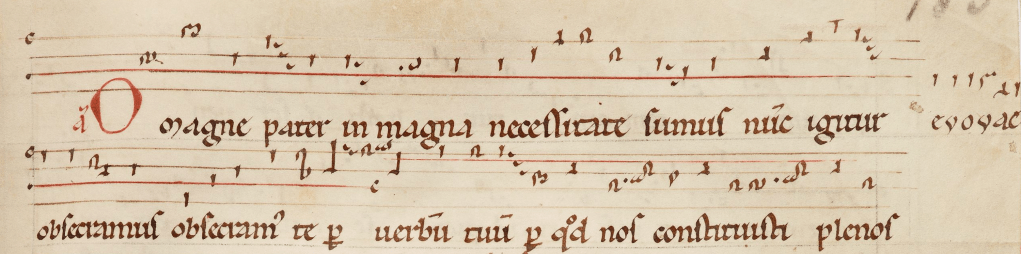 O magne pater in magna necessitate sumus nūc igitur evovae
obsecramus obsecram⁹ te ꝑ uerbū tuū ꝑ qͦd nos constituisti plenos